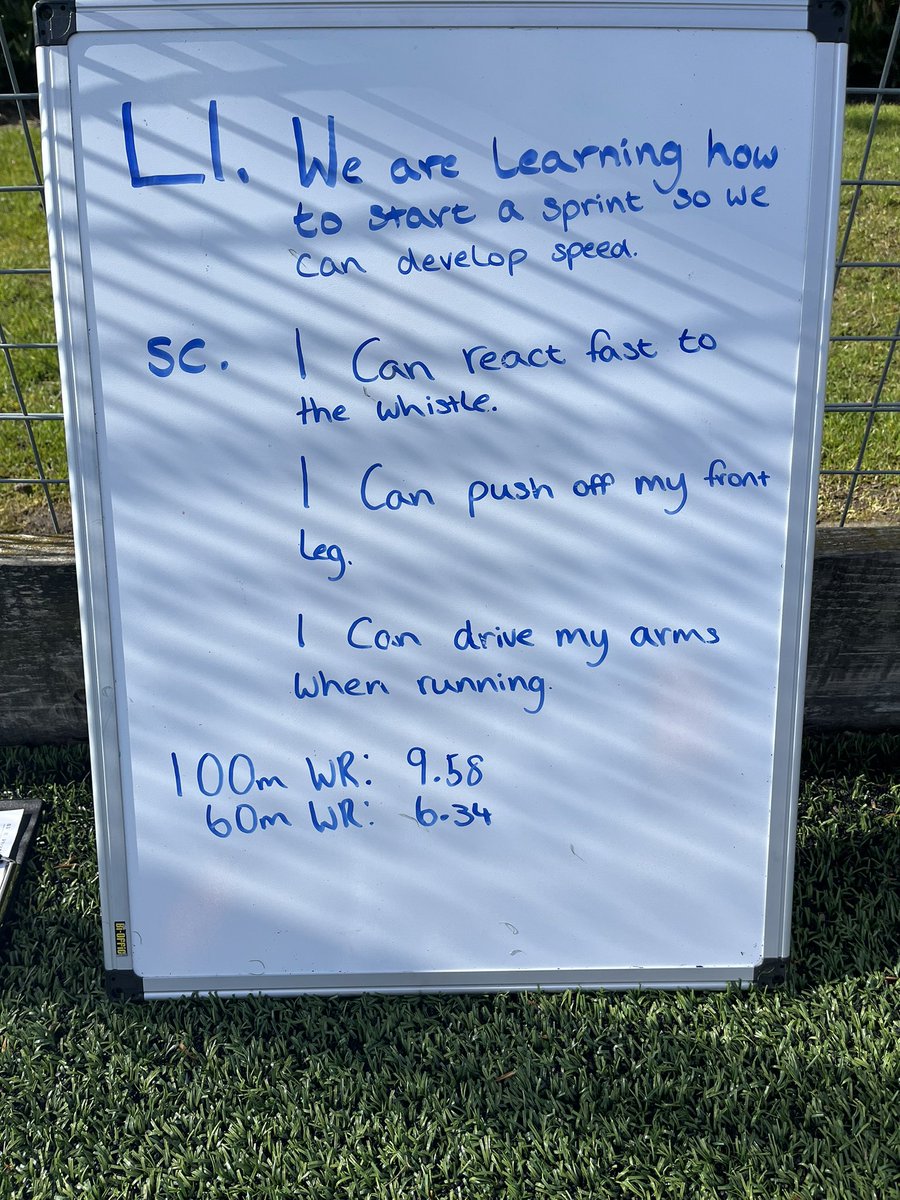 LI. We are learning how
to start a sprint so we
can develop speed.
SC. I Can react fast to
the whistle.
I Can push off my front
leg.
I Can drive my arms
when running.
100m WR: 9.58
60m WR: 6.34
BI-OFFICE